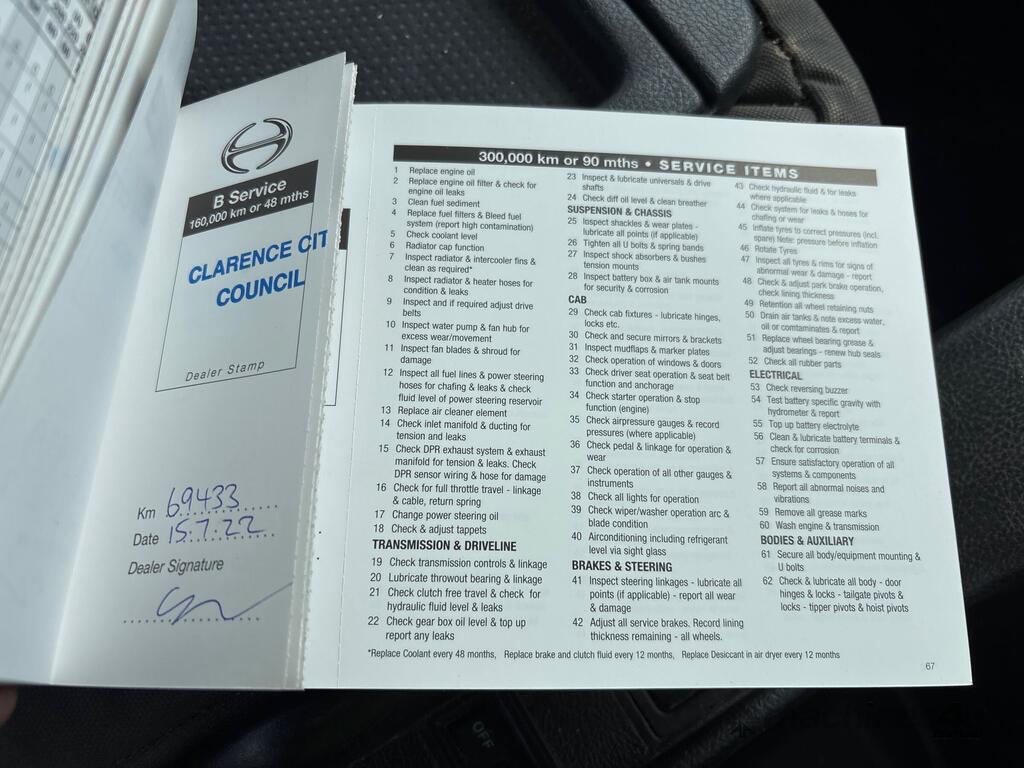 B Service
160,000 km or 48 mths
CLARENCE CIT
COUNCIL
Dealer Stamp
Km 69433
Date 15.7.22
Dealer Signature
300,000 km or 90 mths • SERVICE ITEMS
1 Replace engine oil
2 Replace engine oil filter & check for
engine oil leaks
3 Clean fuel sediment
4 Replace fuel filters & Bleed fuel
system (report high contamination)
5 Check coolant level
6 Radiator cap function
7 Inspect radiator & intercooler fins &
clean as required*
8 Inspect radiator & heater hoses for
condition & leaks
9 Inspect and if required adjust drive
belts
10 Inspect water pump & fan hub for
excess wear/movement
11 Inspect fan blades & shroud for
damage
12 Inspect all fuel lines & power steering
hoses for chafing & leaks & check
fluid level of power steering reservoir
13 Replace air cleaner element
14 Check inlet manifold & ducting for
tension and leaks
15 Check DPR exhaust system & exhaust
manifold for tension & leaks. Check
DPR sensor wiring & hose for damage
16 Check for full throttle travel - linkage
& cable, return spring
17 Change power steering oil
18 Check & adjust tappets
TRANSMISSION & DRIVELINE
19 Check transmission controls & linkage
20 Lubricate throwout bearing & linkage
21 Check clutch free travel & check for
hydraulic fluid level & leaks
22 Check gear box oil level & top up
report any leaks
23 Inspect & lubricate universals & drive
shafts
24 Check diff oil level & clean breather
SUSPENSION & CHASSIS
25 Inspect shackles & wear plates -
lubricate all points (if applicable)
26 Tighten all U bolts & spring bands
27 Inspect shock absorbers & bushes
tension mounts
28 Inspect battery box & air tank mounts
for security & corrosion
CAB
29 Check cab fixtures - lubricate hinges,
locks etc.
30 Check and secure mirrors & brackets
31 Inspect mudflaps & marker plates
32 Check operation of windows & doors
33 Check driver seat operation & seat belt
function and anchorage
34 Check starter operation & stop
function (engine)
35 Check airpressure gauges & record
pressures (where applicable)
36 Check pedal & linkage for operation &
wear
37 Check operation of all other gauges &
instruments
38 Check all lights for operation
39 Check wiper/washer operation arc &
blade condition
40 Airconditioning including refrigerant
level via sight glass
BRAKES & STEERING
41 Inspect steering linkages - lubricate all
points (if applicable) - report all wear
& damage
42 Adjust all service brakes. Record lining
thickness remaining - all wheels.
43 Check hydraulic fluid & for leaks
where applicable
44 Check system for leaks & hoses for
chafing or wear
45 Inflate tyres to correct pressures (incl.
spare) Note: pressure before inflation
46 Rotate Tyres
47 Inspect all tyres & rims for signs of
abnormal wear & damage - report
48 Check & adjust park brake operation,
check lining thickness
49 Retention all wheel retaining nuts
50 Drain air tanks & note excess water,
oil or comtaminates & report
51 Replace wheel bearing grease &
adjust bearings - renew hub seals
52 Check all rubber parts
ELECTRICAL
53 Check reversing buzzer
54 Test battery specific gravity with
hydrometer & report
55 Top up battery electrolyte
56 Clean & lubricate battery terminals &
check for corrosion
57 Ensure satisfactory operation of all
systems & components
58 Report all abnormal noises and
vibrations
59 Remove all grease marks
60 Wash engine & transmission
BODIES & AUXILIARY
61 Secure all body/equipment mounting &
U bolts
62 Check & lubricate all body - door
hinges & locks - tailgate pivots &
locks - tipper pivots & hoist pivots
*Replace Coolant every 48 months, Replace brake and clutch fluid every 12 months, Replace Desiccant in air dryer every 12 months
67
OFF